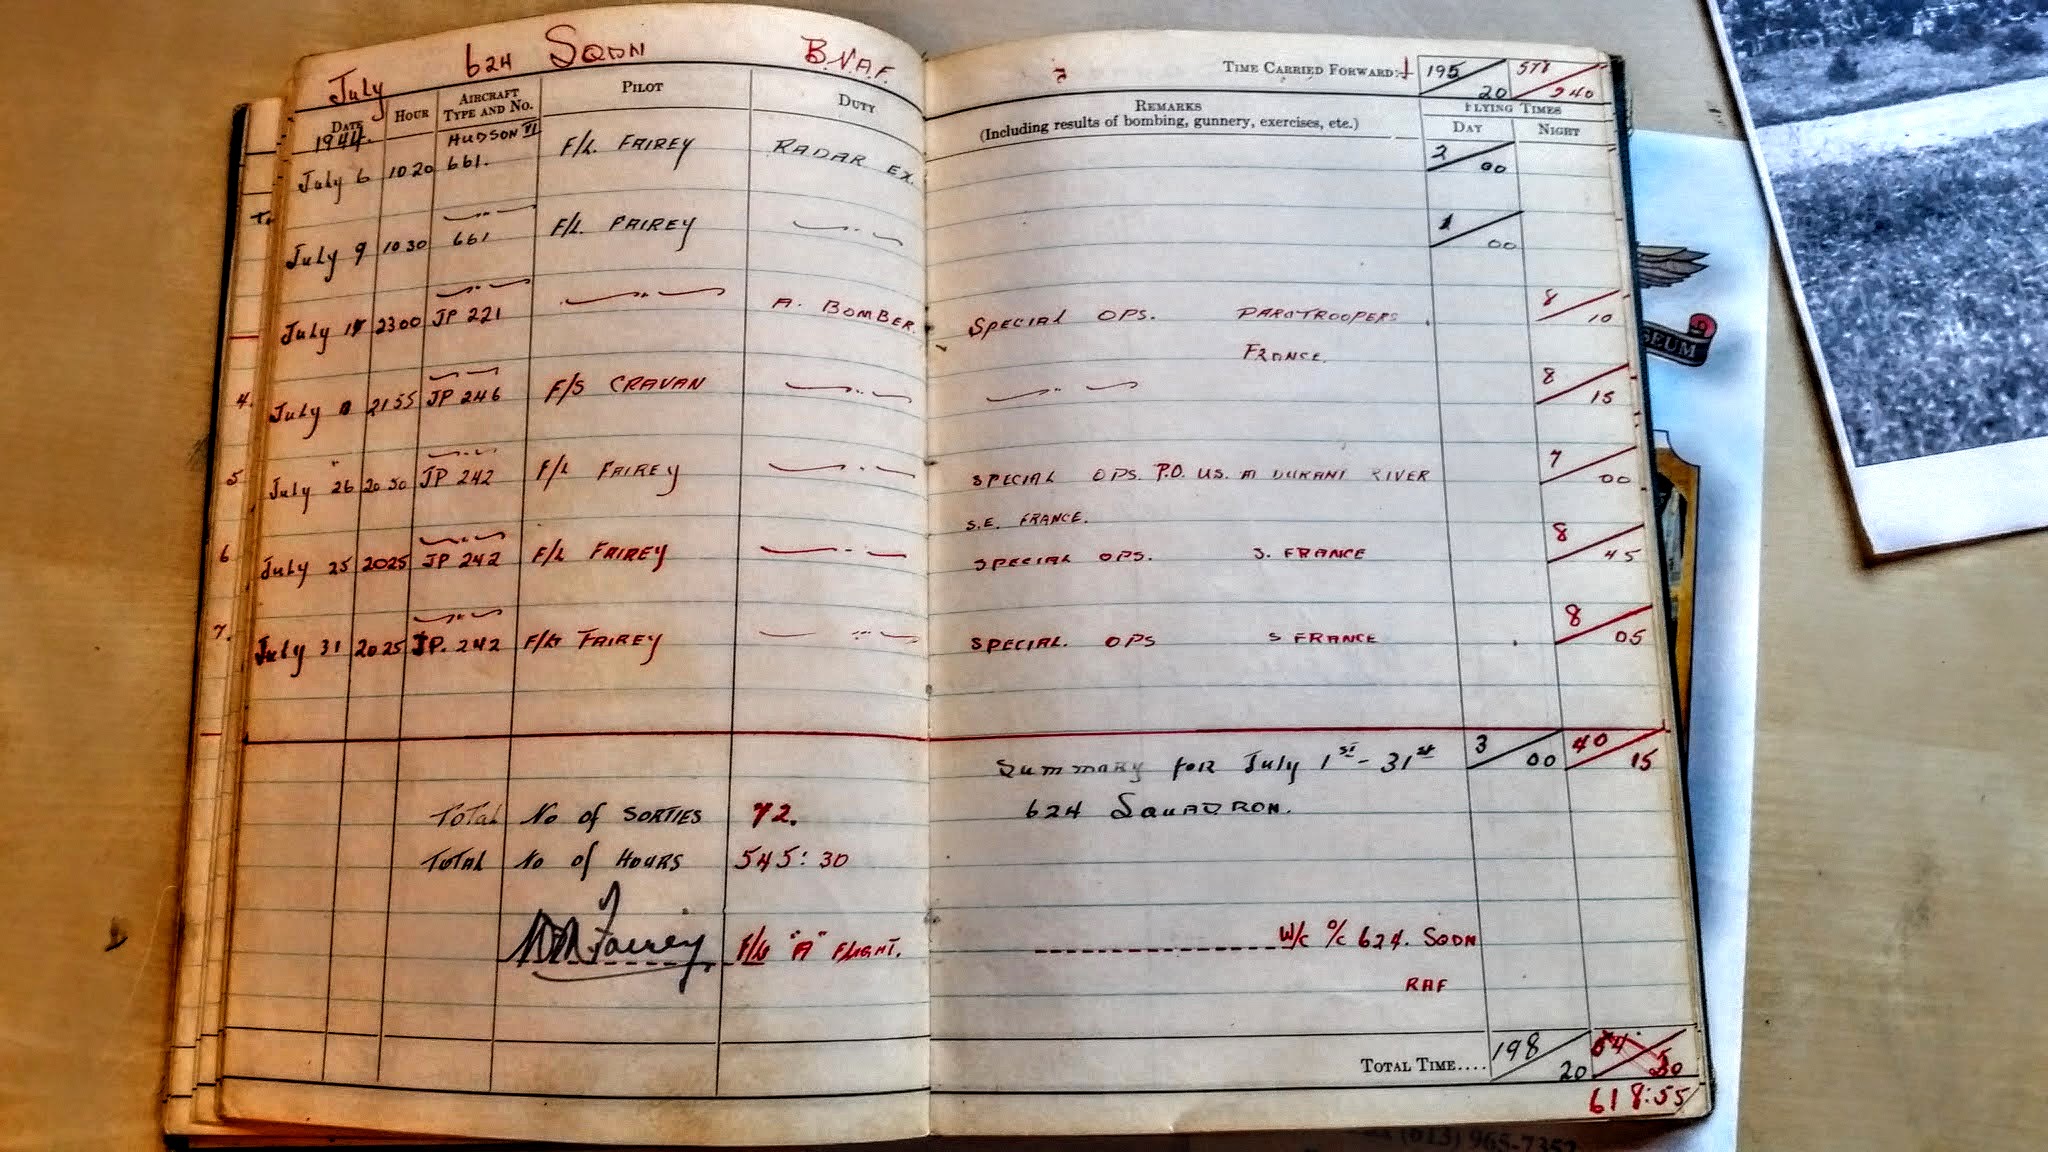 July 624 SQDN B.N.A.F.
DATE HOUR AIRCRAFT TYPE AND NO. PILOT DUTY
TIME CARRIED FORWARD: 195/20 578/40
REMARKS
(Including results of bombing, gunnery, exercises, etc.)
FLYING TIMES
DAY NIGHT
1944. HUDSON VI
July 6 1020 661. F/L. FAIREY RADAR EX. 2/00
July 9 1030 661 F/L. FAIREY 1/00
July 2300 JP 221 A. BOMBER. SPECIAL OPS. PARATROOPERS 8/10
FRANCE.
4. July 2155 JP 246 F/S CRAVAN 8/15
5 July 26 2030 JP 242 F/L FAIREY SPECIAL OPS. P.O. U.S. RIVER 7/00
S.E. FRANCE.
6 July 25 2025 JP 242 F/L FAIREY SPECIAL OPS. S. FRANCE 8/45
7. July 31 2025 JP. 242 F/L FAIREY SPECIAL. OPS S FRANCE 8/05
Summary for July 1st - 31st 3/00 40/15
TOTAL No of SORTIES 72. 624 SQUADRON.
TOTAL No of HOURS 545:30
Fairey F/L "A" FLIGHT. W/C O/C 624. SQDN
RAF
TOTAL TIME.... 198/20
618:55
SEUM
(613) 965-7352